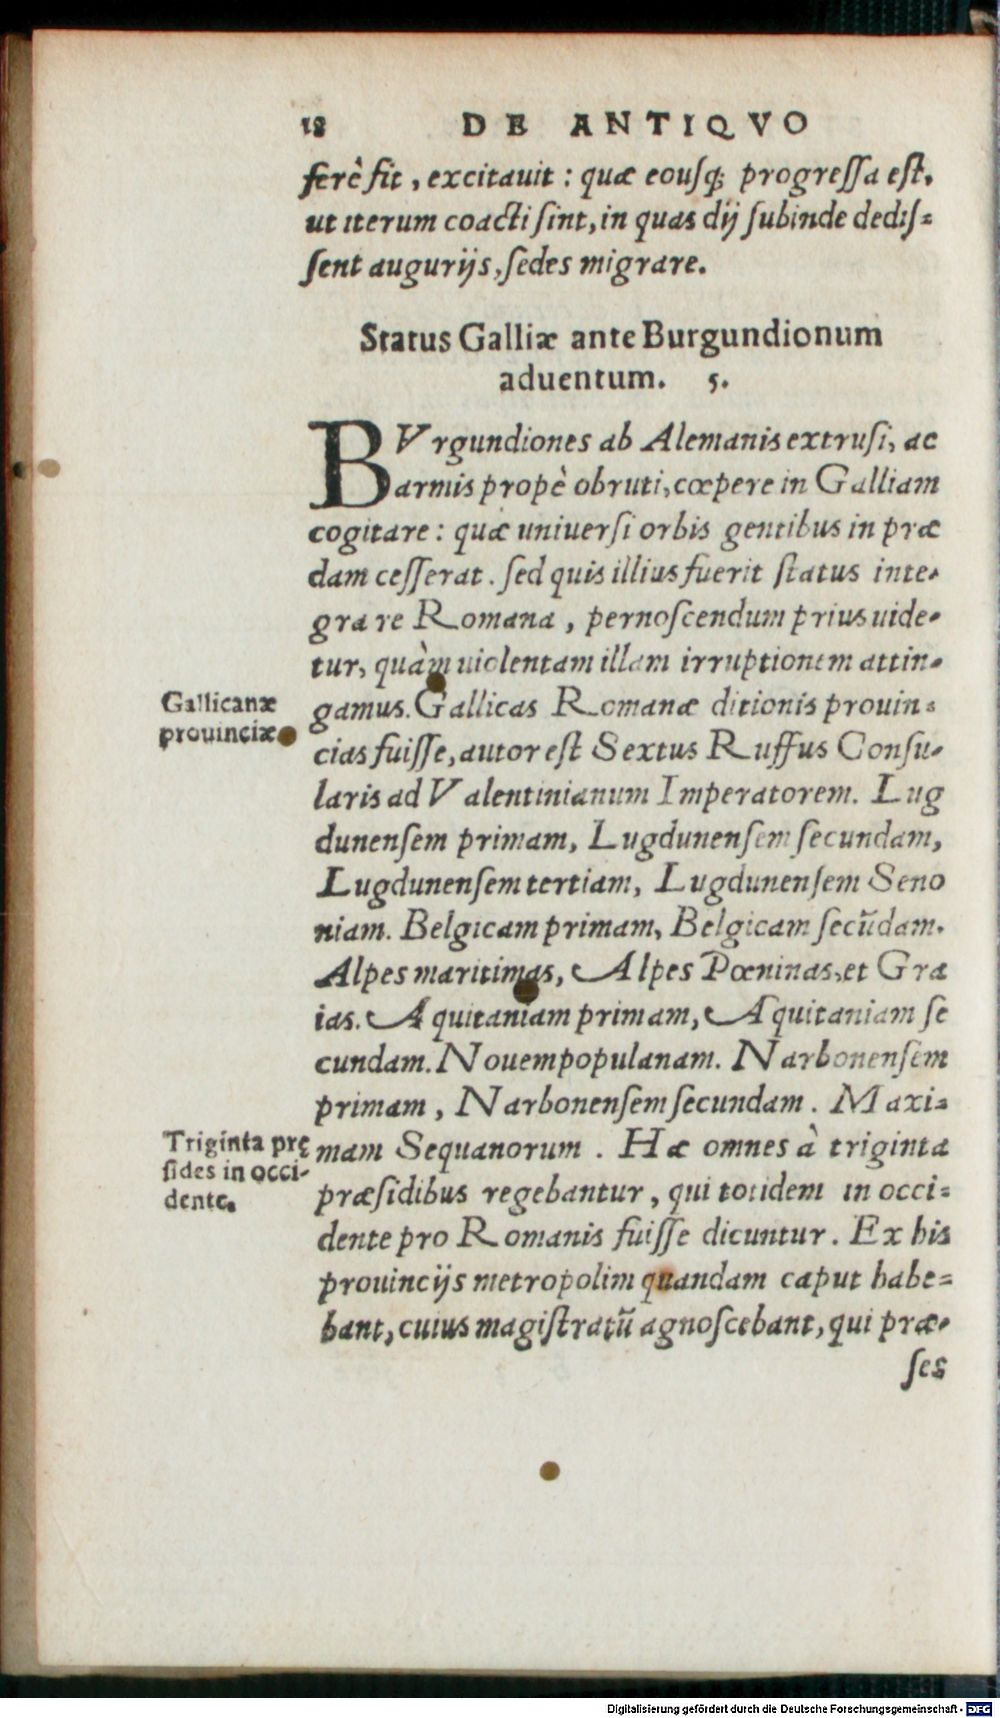 18 DE ANTIQVO
ferè fit, excitauit: quæ eousq; progressa est,
ut iterum coacti sint, in quas dij subinde dedis-
sent augurijs, sedes migrare.
Status Galliæ ante Burgundionum
aduentum. 5.
BVrgundiones ab Alemanis extrusi, ac
armis propè obruti, cœpere in Galliam
cogitare: quæ uniuersi orbis gentibus in præ
dam cesserat. sed quis illius fuerit status inte-
gra re Romana, pernoscendum prius uide-
tur, quàm uiolentam illam irruptionem attin-
Gallicanæ
prouinciæ
gamus. Gallicas Romanæ ditionis prouin-
cias fuisse, autor est Sextus Ruffus Consu-
laris ad Valentinianum Imperatorem. Lug
dunensem primam, Lugdunensem secundam,
Lugdunensem tertiam, Lugdunensem Seno
niam. Belgicam primam, Belgicam secũdam.
Alpes maritimas, Alpes Pœninas, et Gra
ias. Aquitaniam primam, Aquitaniam se
cundam. Nouempopulanam. Narbonensem
primam, Narbonensem secundam. Maxi-
Triginta prę
sides in occi-
dente.
mam Sequanorum. Hæ omnes à triginta
præsidibus regebantur, qui totidem in occi-
dente pro Romanis fuisse dicuntur. Ex his
prouincijs metropolim quandam caput habe-
bant, cuius magistratũ agnoscebant, qui præ-
ses
Digitalisierung gefördert durch die Deutsche Forschungsgemeinschaft - DFG